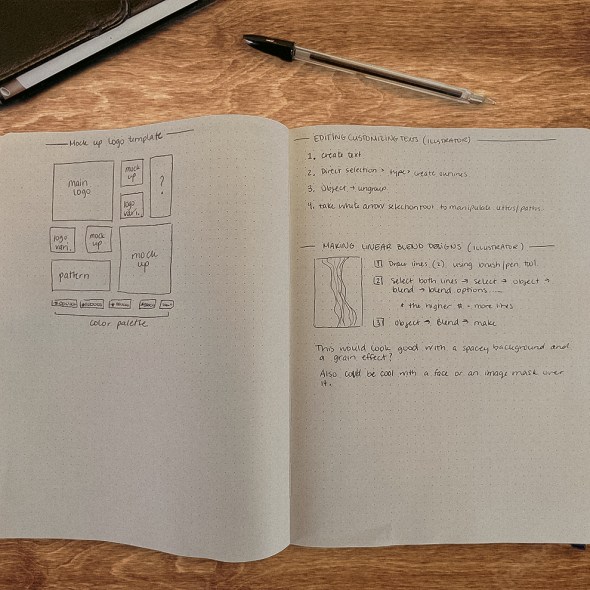 Mock up logo template
main
logo
mock
up
?
logo
vari.
logo
vari.
mock
up
mock
up
pattern
color palette
EDITING CUSTOMIZING TEXTS (ILLUSTRATOR)
1. create text
2. Direct selection > type > create outlines
3. Object → ungroup
4. take white arrow selection tool to manipulate letters/paths.
MAKING LINEAR BLEND DESIGNS (ILLUSTRATOR)
1 Draw lines (2) using brush/pen tool
2 Select both lines → select → object →
blend → blend options.....
* the higher # = more lines
3 Object → Blend → make
This would look good with a spacey background and
a grain effect?
Also could be cool with a face or an image mask over
it.